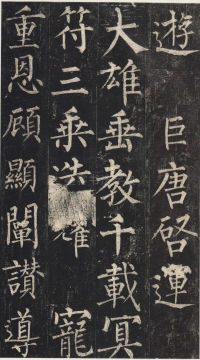 遊 巨唐啓運
大雄垂教千載冥
符三乘迭耀 寵
重恩顧顯闡讚導